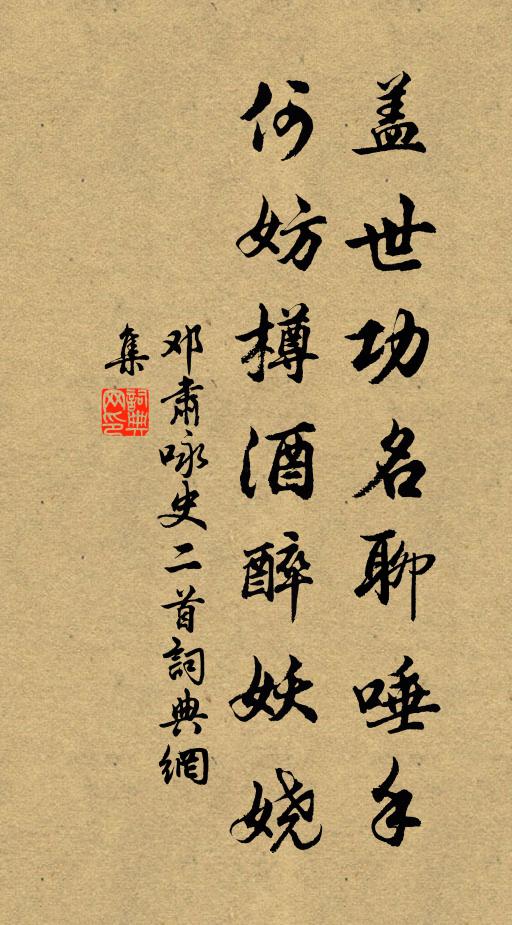 盖世功名聊唾手
何妨樽酒醉妖娆
邓肃咏史二首詞典網
集
詞典网印